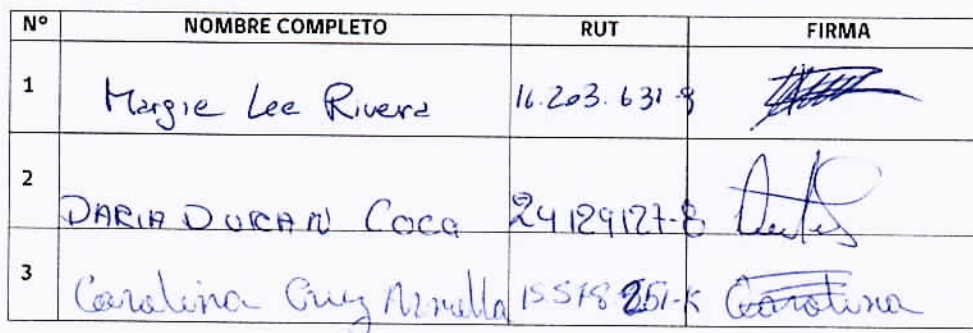 N° NOMBRE COMPLETO RUT FIRMA
1 Margie Lee Rivera 16.203.631-9
2 DARIA DURAN Coca 24129127-8
3 Carolina Cruz 15518251-K Carolina